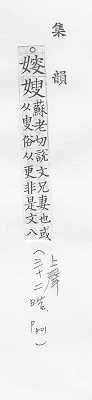 集韻
○㛮嫂
蘇老切說文兄妻也或
从叟俗从更非是文八
上聲
(三十二皓、P401)